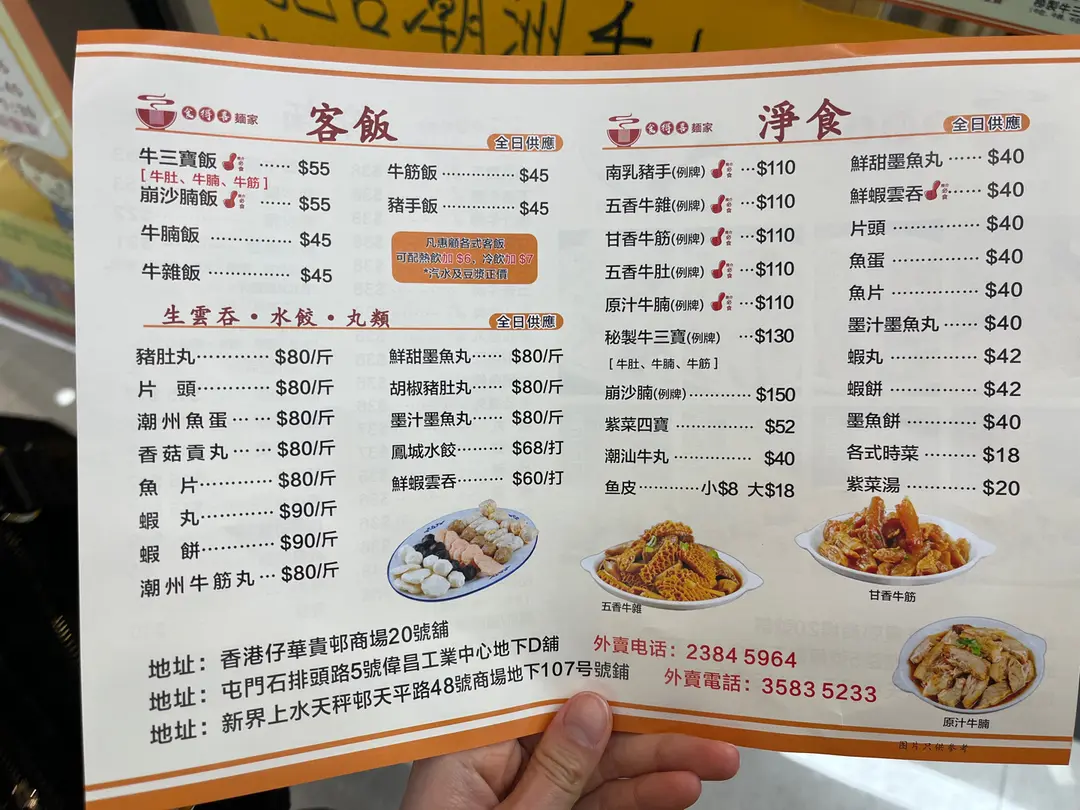 麵家
客飯
全日供應
牛三寶飯 必食 …… $55
[ 牛肚、牛腩、牛筋 ]
崩沙腩飯 必食 …… $55
牛腩飯 …………… $45
牛雜飯 …………… $45
牛筋飯 …………… $45
豬手飯 …………… $45
凡惠顧各式客飯
可配熱飲加 $6，冷飲加 $7
*汽水及豆漿正價
生雲吞・水餃・丸類
全日供應
豬肚丸………… $80/斤
片　頭………… $80/斤
潮州魚蛋…… $80/斤
香菇貢丸…… $80/斤
魚　片………… $80/斤
蝦　丸………… $90/斤
蝦　餅………… $90/斤
潮州牛筋丸… $80/斤
鮮甜墨魚丸…… $80/斤
胡椒豬肚丸…… $80/斤
墨汁墨魚丸…… $80/斤
鳳城水餃……… $68/打
鮮蝦雲吞……… $60/打
地址：香港仔華貴邨商場20號舖
地址：屯門石排頭路5號偉昌工業中心地下D舖
地址：新界上水天秤邨天平路48號商場地下107号號鋪
麵家
淨食
全日供應
南乳豬手(例牌) 必食 …$110
五香牛雜(例牌) 必食 …$110
甘香牛筋(例牌) 必食 …$110
五香牛肚(例牌) 必食 …$110
原汁牛腩(例牌) 必食 …$110
秘製牛三寶(例牌) …$130
[ 牛肚、牛腩、牛筋 ]
崩沙腩(例牌)………… $150
紫菜四寶 …………… $52
潮汕牛丸 …………… $40
鱼皮…………小$8 大$18
鮮甜墨魚丸 …… $40
鮮蝦雲吞 必食 …… $40
片頭 …………… $40
魚蛋 …………… $40
魚片 …………… $40
墨汁墨魚丸 …… $40
蝦丸 …………… $42
蝦餅 …………… $42
墨魚餅 ………… $40
各式時菜 ……… $18
紫菜湯 ………… $20
五香牛雜
甘香牛筋
原汁牛腩
外賣电话：2384 5964
外賣電話：3583 5233
图片只供參考